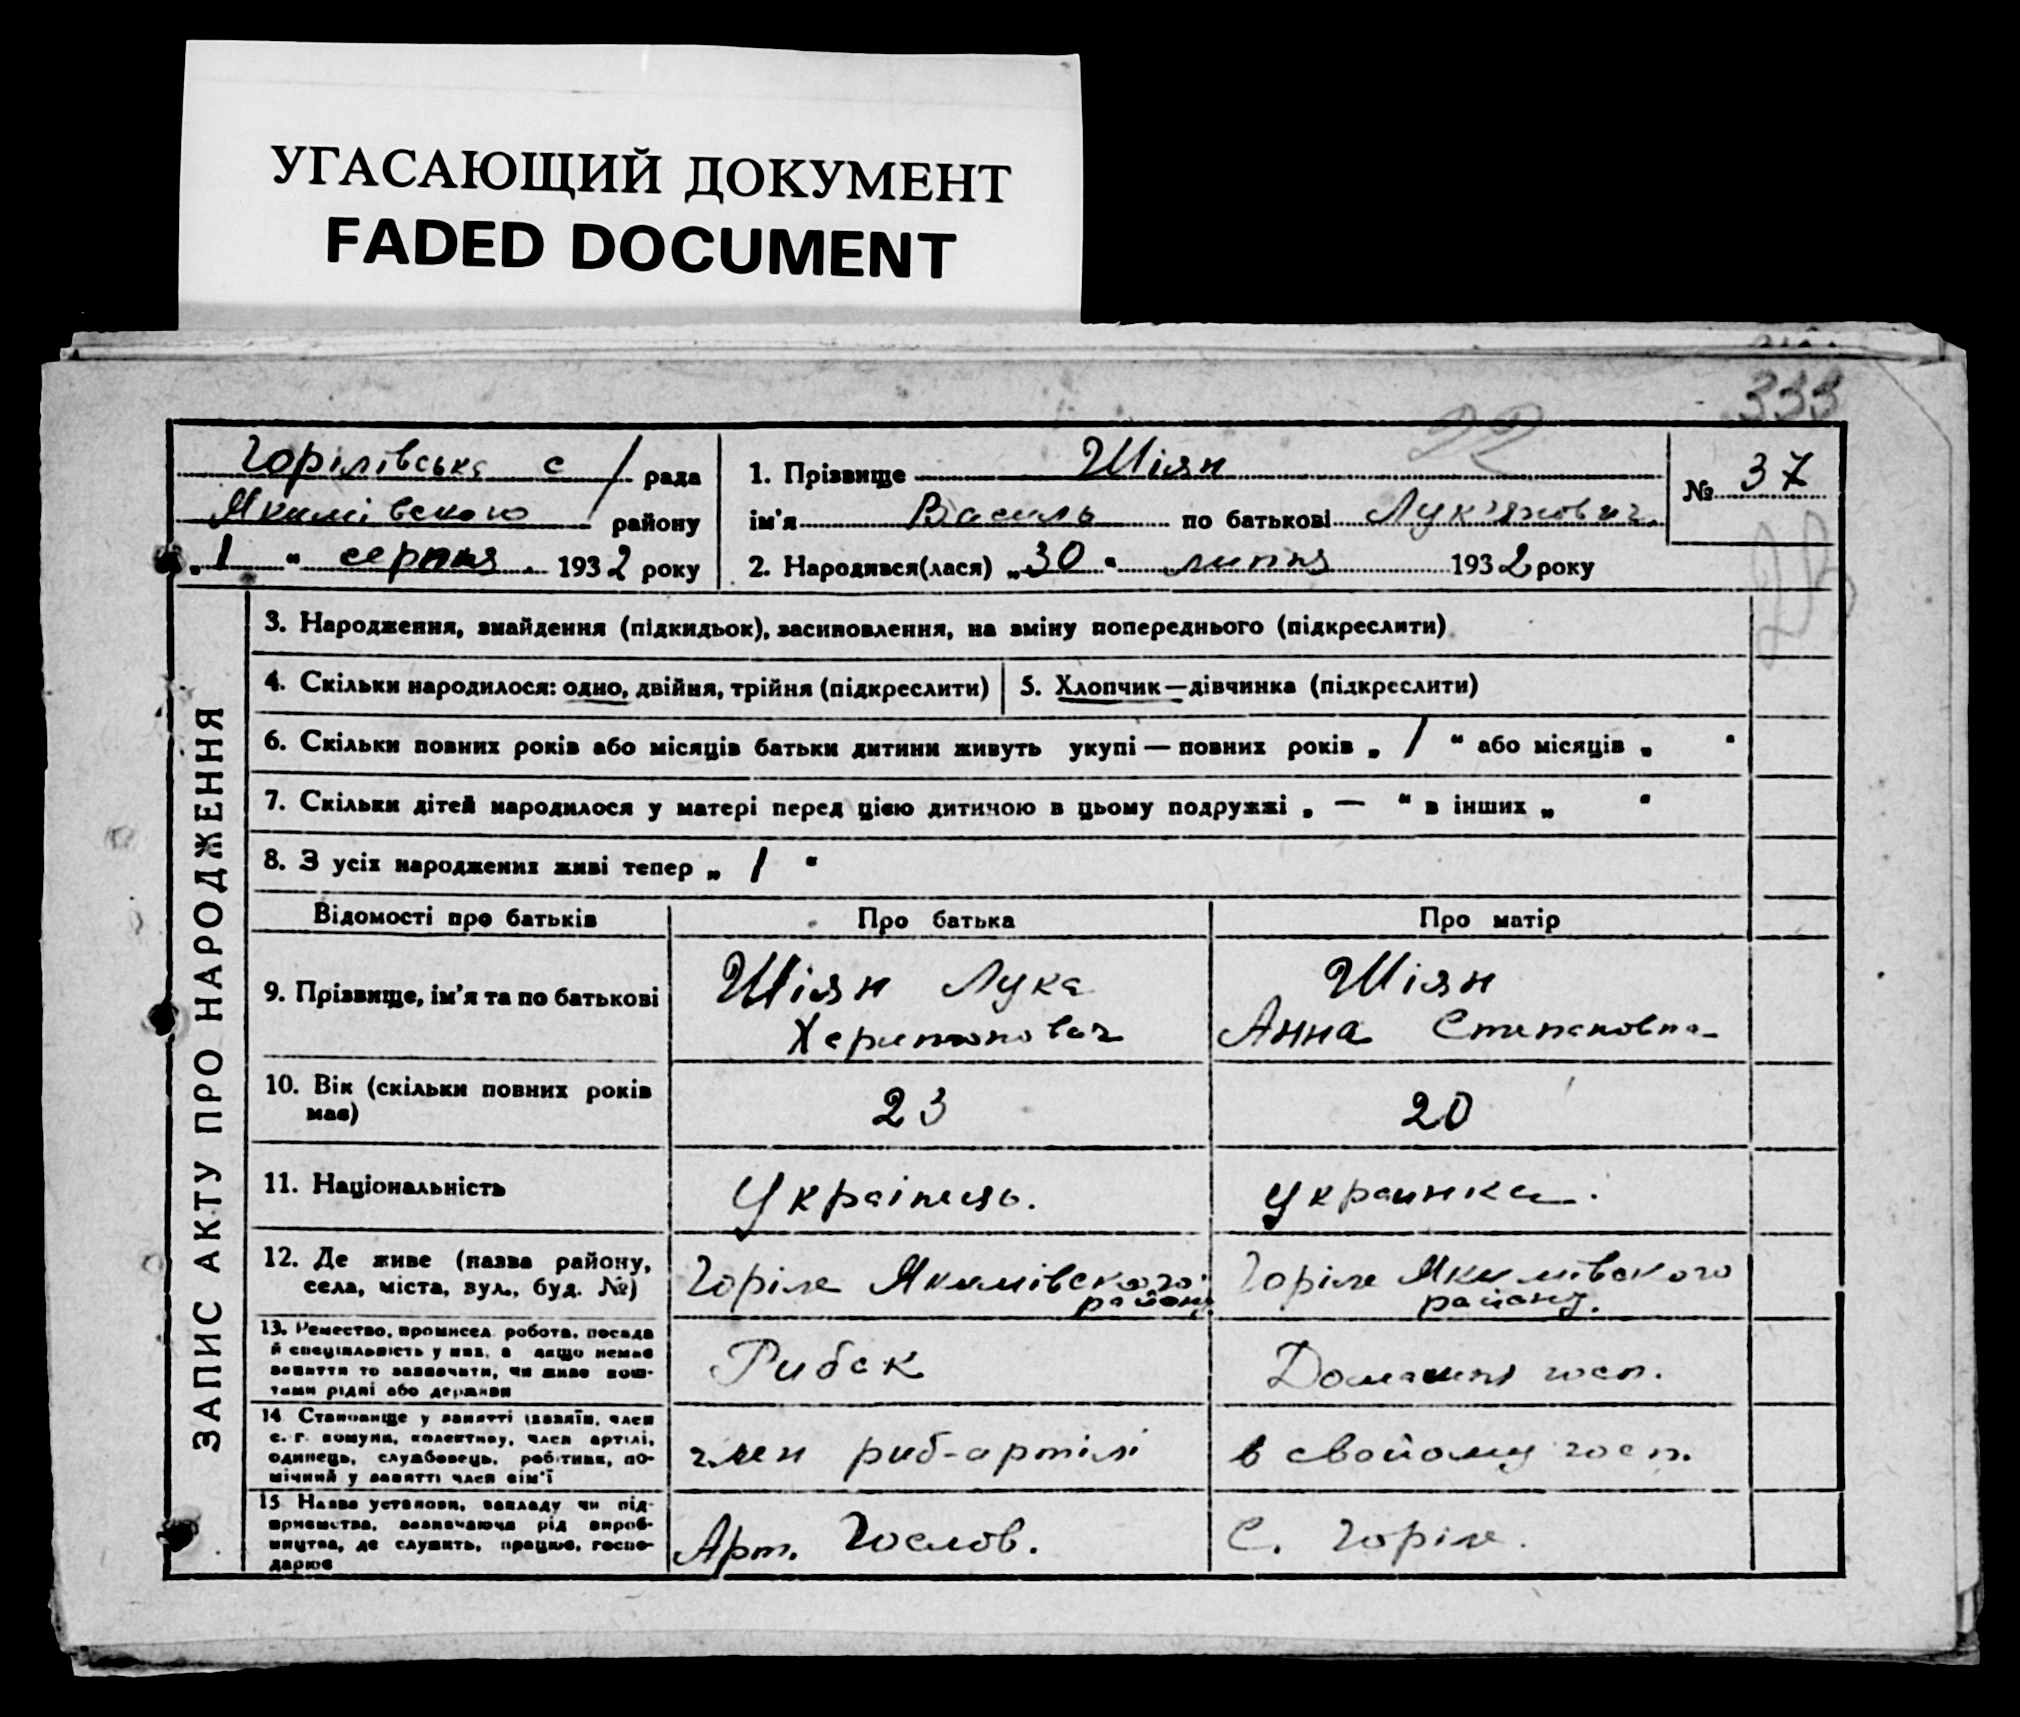 УГАСАЮЩИЙ ДОКУМЕНТ
FADED DOCUMENT
333
22
Горілівська с/рада
Якимівського району
„ 1 “ серпня 1932 року
1. Прізвище Шіян
ім'я Василь по батькові Лук'янович
2. Народився(лася) „30“ липня 1932 року
№ 37
ЗАПИС АКТУ ПРО НАРОДЖЕННЯ
3. Народження, знайдення (підкидьок), засиновлення, на зміну попереднього (підкреслити)
4. Скільки народилося: одно, двійня, трійня (підкреслити)
5. Хлопчик—дівчинка (підкреслити)
6. Скільки повних років або місяців батьки дитини живуть укупі — повних років „ 1 “ або місяців „ “
7. Скільки дітей народилося у матері перед цією дитиною в цьому подружжі „ — “ в інших „ “
8. З усіх народжених живі тепер „ 1 “
Відомості про батьків Про батька Про матір
9. Прізвище, ім'я та по батькові
Шіян Лука
Харитонович
Шіян
Анна Степановна
10. Вік (скільки повних років
має)
23
20
11. Національність
Українець.
украинка.
12. Де живе (назва району,
села, міста, вул., буд. №)
Горіле Якимівського
району
Горіле Якимівского
району.
13. Ремество, промисел, робота, посада
й спеціяльність у них, а якщо немає
заняття то зазначити, чи живе кош-
тами рідні або держави
Рибак
Домашня госп.
14 Становище у занятті (хазяїн, член
с.-г. комуни, колективу, член артілі,
одинець, службовець, робітник, по-
мічний у занятті член сім'ї
член риб-артілі
в свойому госп.
15 Назва установи, закладу чи під-
приємства, зазначаючи рід вироб-
ництва, де служить, працює, госпо-
дарює
Арт. Гослов.
С. Горіле.